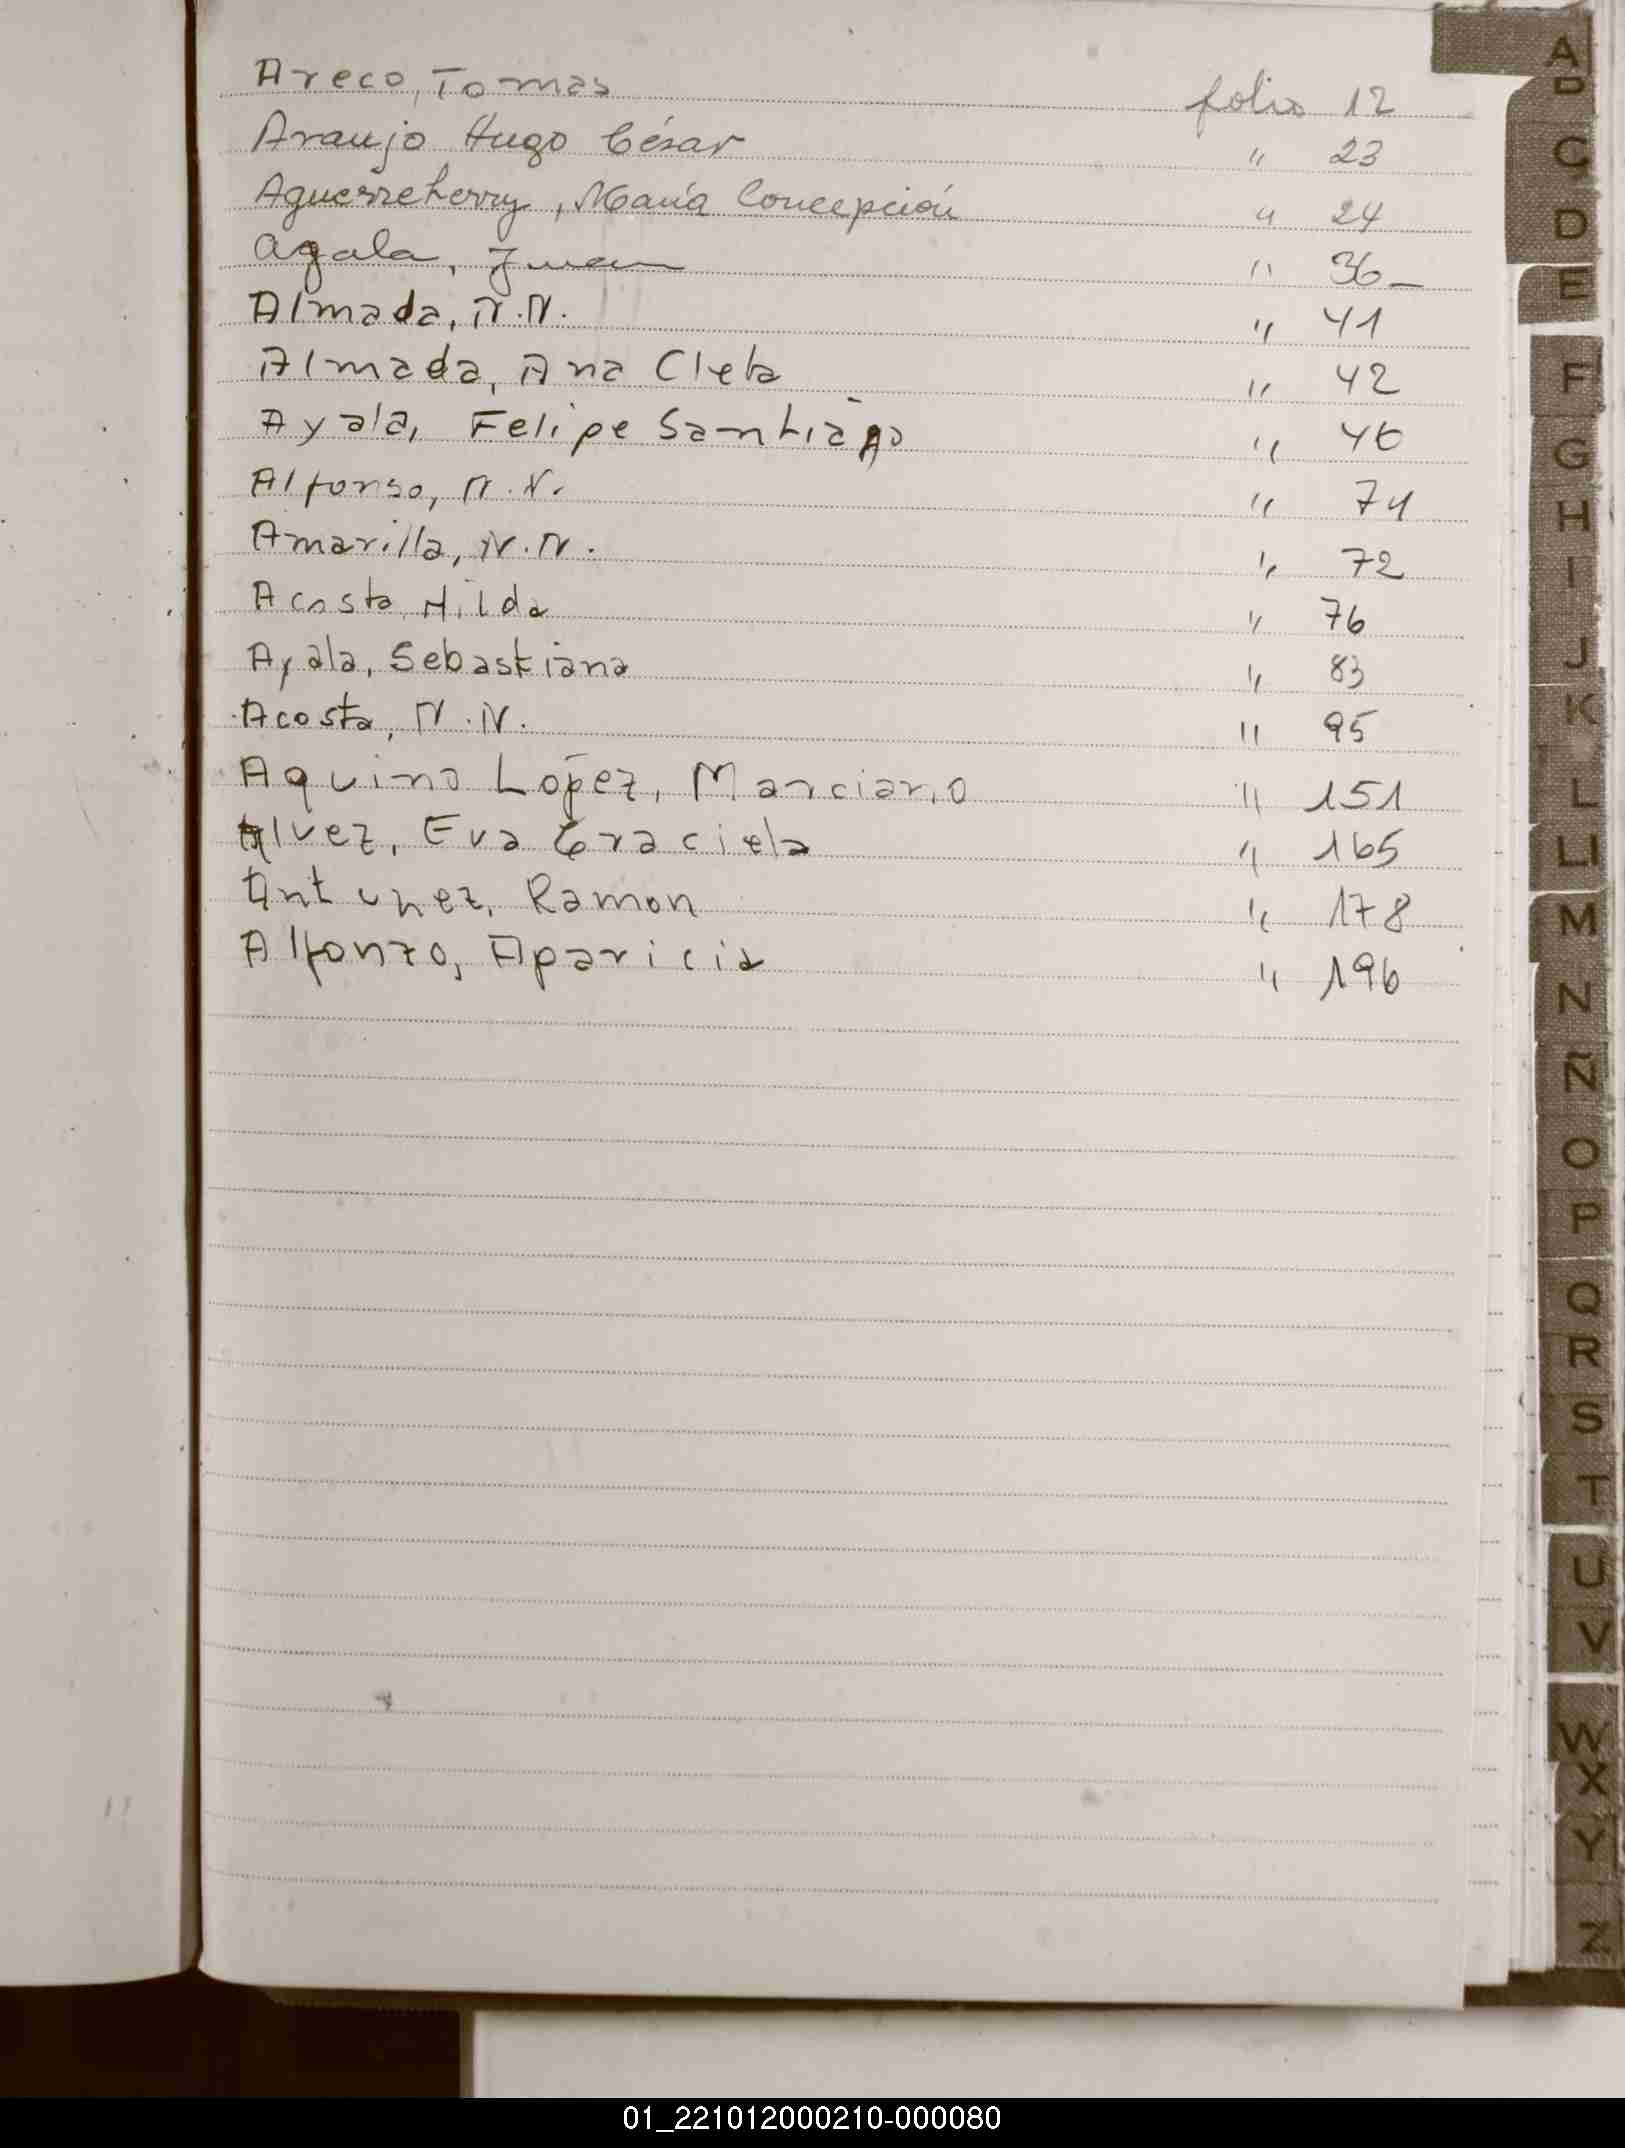 Areco, Tomas folio 12
Araujo Hugo César " 23
Aguerreberry, María Concepción " 24
Agala, Juan " 36_
Almada, N.N. " 41
Almada, Ana Cleta " 42
Ayala, Felipe Santiago " 46
Alfonso, N.N. " 71
Amarilla, N.N. " 72
Acosta Hilda " 76
Ayala, Sebastiana " 83
Acosta, N.N. " 95
Aquino López, Marciano " 151
Alvez, Eva Graciela " 165
Antunez, Ramon " 178
Alfonzo, Aparicia " 196
A
B
C
D
E
F
G
H
I
J
K
L
LL
M
N
Ñ
O
P
Q
R
S
T
U
V
W
X
Y
Z
01_221012000210-000080